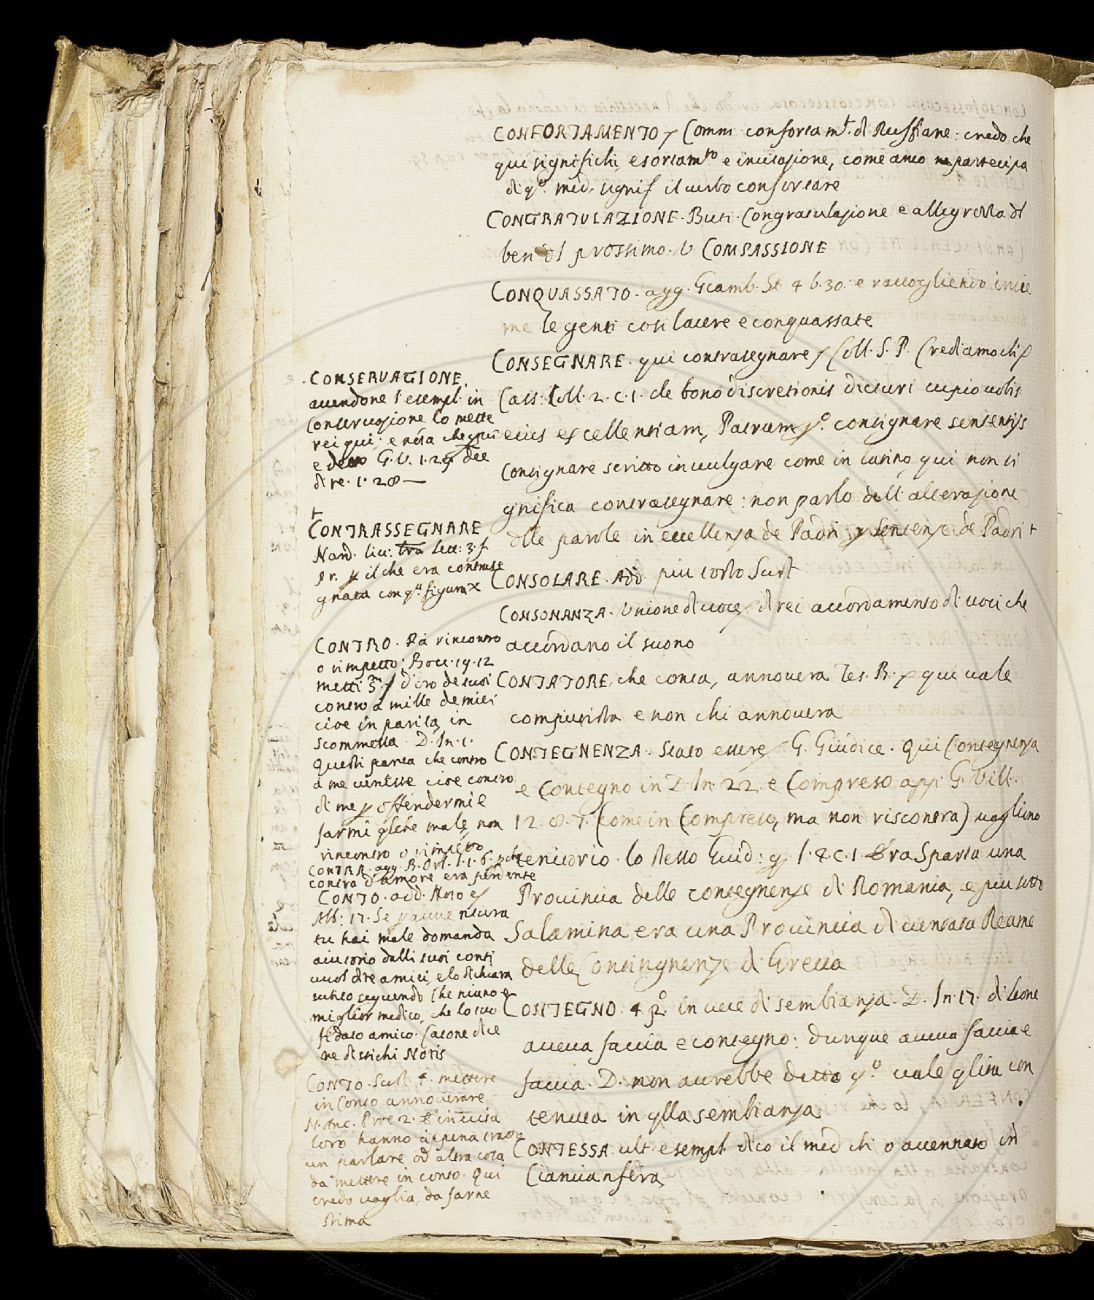 CONFORTAMENTO Comm confortam.to di Ruffiane: credo che
qui significhi esortam.to e incitazione, come anco partecipa
di q.o med. signif il verbo confortare
CONGRATULAZIONE. Buti. Congratulazione e allegrezza dl
ben dl prossimo. V COMPASSIONE
CONQUASSATO. agg. Giamb. St 4 b. 30. e raccogliendo insie
me le genti cosi lacere e conquassate
CONSEGNARE. qui contrasegnare Coll. S. P. Crediamo
Cass. Coll. 2. c. 1. de bono discretionis dicturi cupio vobis
eius excellentiam, Patrum consignare sententijs
Consignare scritto in vulgare come in latino qui non si
gnifica contrasegnare: non parlo dell' alterazione
delle parole in eccellenza de Padri sentenze de Padri +
CONSOLARE. Add. piu tosto Sust
CONSONANZA. Unione di voce, direi accordamento di voci che
accordano il suono
CONTATORE, che conta, annovera Tes. B. qui vale
computista e non chi annovera
CONTEGNENZA. Stato essere G. Giudice. qui Contegnenza
e Contegno in D. In. 22. e Compreso app. G. Vill.
12. 8. 7. (come in Compreso, ma non riscontra) vagliono
territorio. lo stesso Guid: g. l. 2 c. 1 Era Sparta una
Provincia delle contegnenze di Romania, e piu sotto
Salamina era una Provincia diventata Reame
delle Contingnenze di Grecia
CONTEGNO. 4 in vece di sembianza. D. In. 17. di leone
aveva faccia e contegno: dunque aveva faccia e
faccia. D. non avrebbe detto vale con
tenuta in sembianza
CONTESSA. ult. esempl. dico il med. chi o avennato in
Cianciansera
CONSERVAGIONE.
avendone l'esempl. in
Conservazione lo mette
rei qui: e nota che qui
e detto G. V. 1. 29 dee
dire. 1. 28 —
+
CONTRASSEGNARE
Nard. liv: tra Lett: 3. f.
pr. il che era contrase
gnata con q.a figura
CONTRO. Da rincontro
o rimpetto: Bocc. 19. 12
metti 5.m d'oro de tuoi
contro a mille de miei
cioe in parita, in
scommessa. D. In. 1.
Questi parea che contro
a me venesse cioe contro
di me offendermi e
farmi male, non
rincontro o rimpetto
CONTRA. agg. B. Orl. 1. 1. 6.
contra d'Amore era
CONTO. add. Noto
Alb: 17. Se ventura
tu hai male domanda
aiutorio dalli tuoi conti
vuol dire amici, e lo dichiara
subito seguendo che niuno e
miglior medico, che lo tuo
fidato amico. Catone dice
ne distichi Notis
CONTO. Sust. 4. mettere
in Conto annoverare.
N. Ant. Proe 2.
loro hanno a pena
un parlare od altra cosa
da mettere in conto. Qui
credo vaglia, da farne
stima